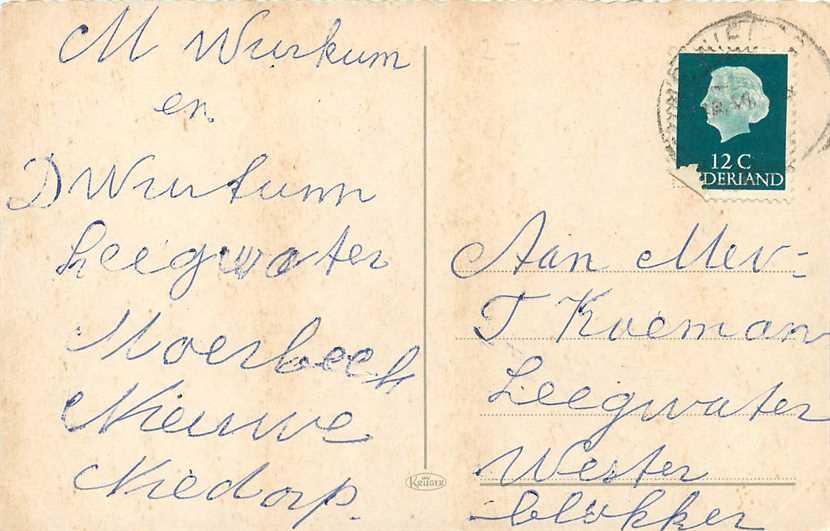 M Wurkum
en
D Wurkum
Leegwater
Moerbeek
Nieuwe
Niedorp.
12 C
NEDERLAND
Aan Mev-
T Koeman
Leegwater
Wester
blokker
KRÜGER